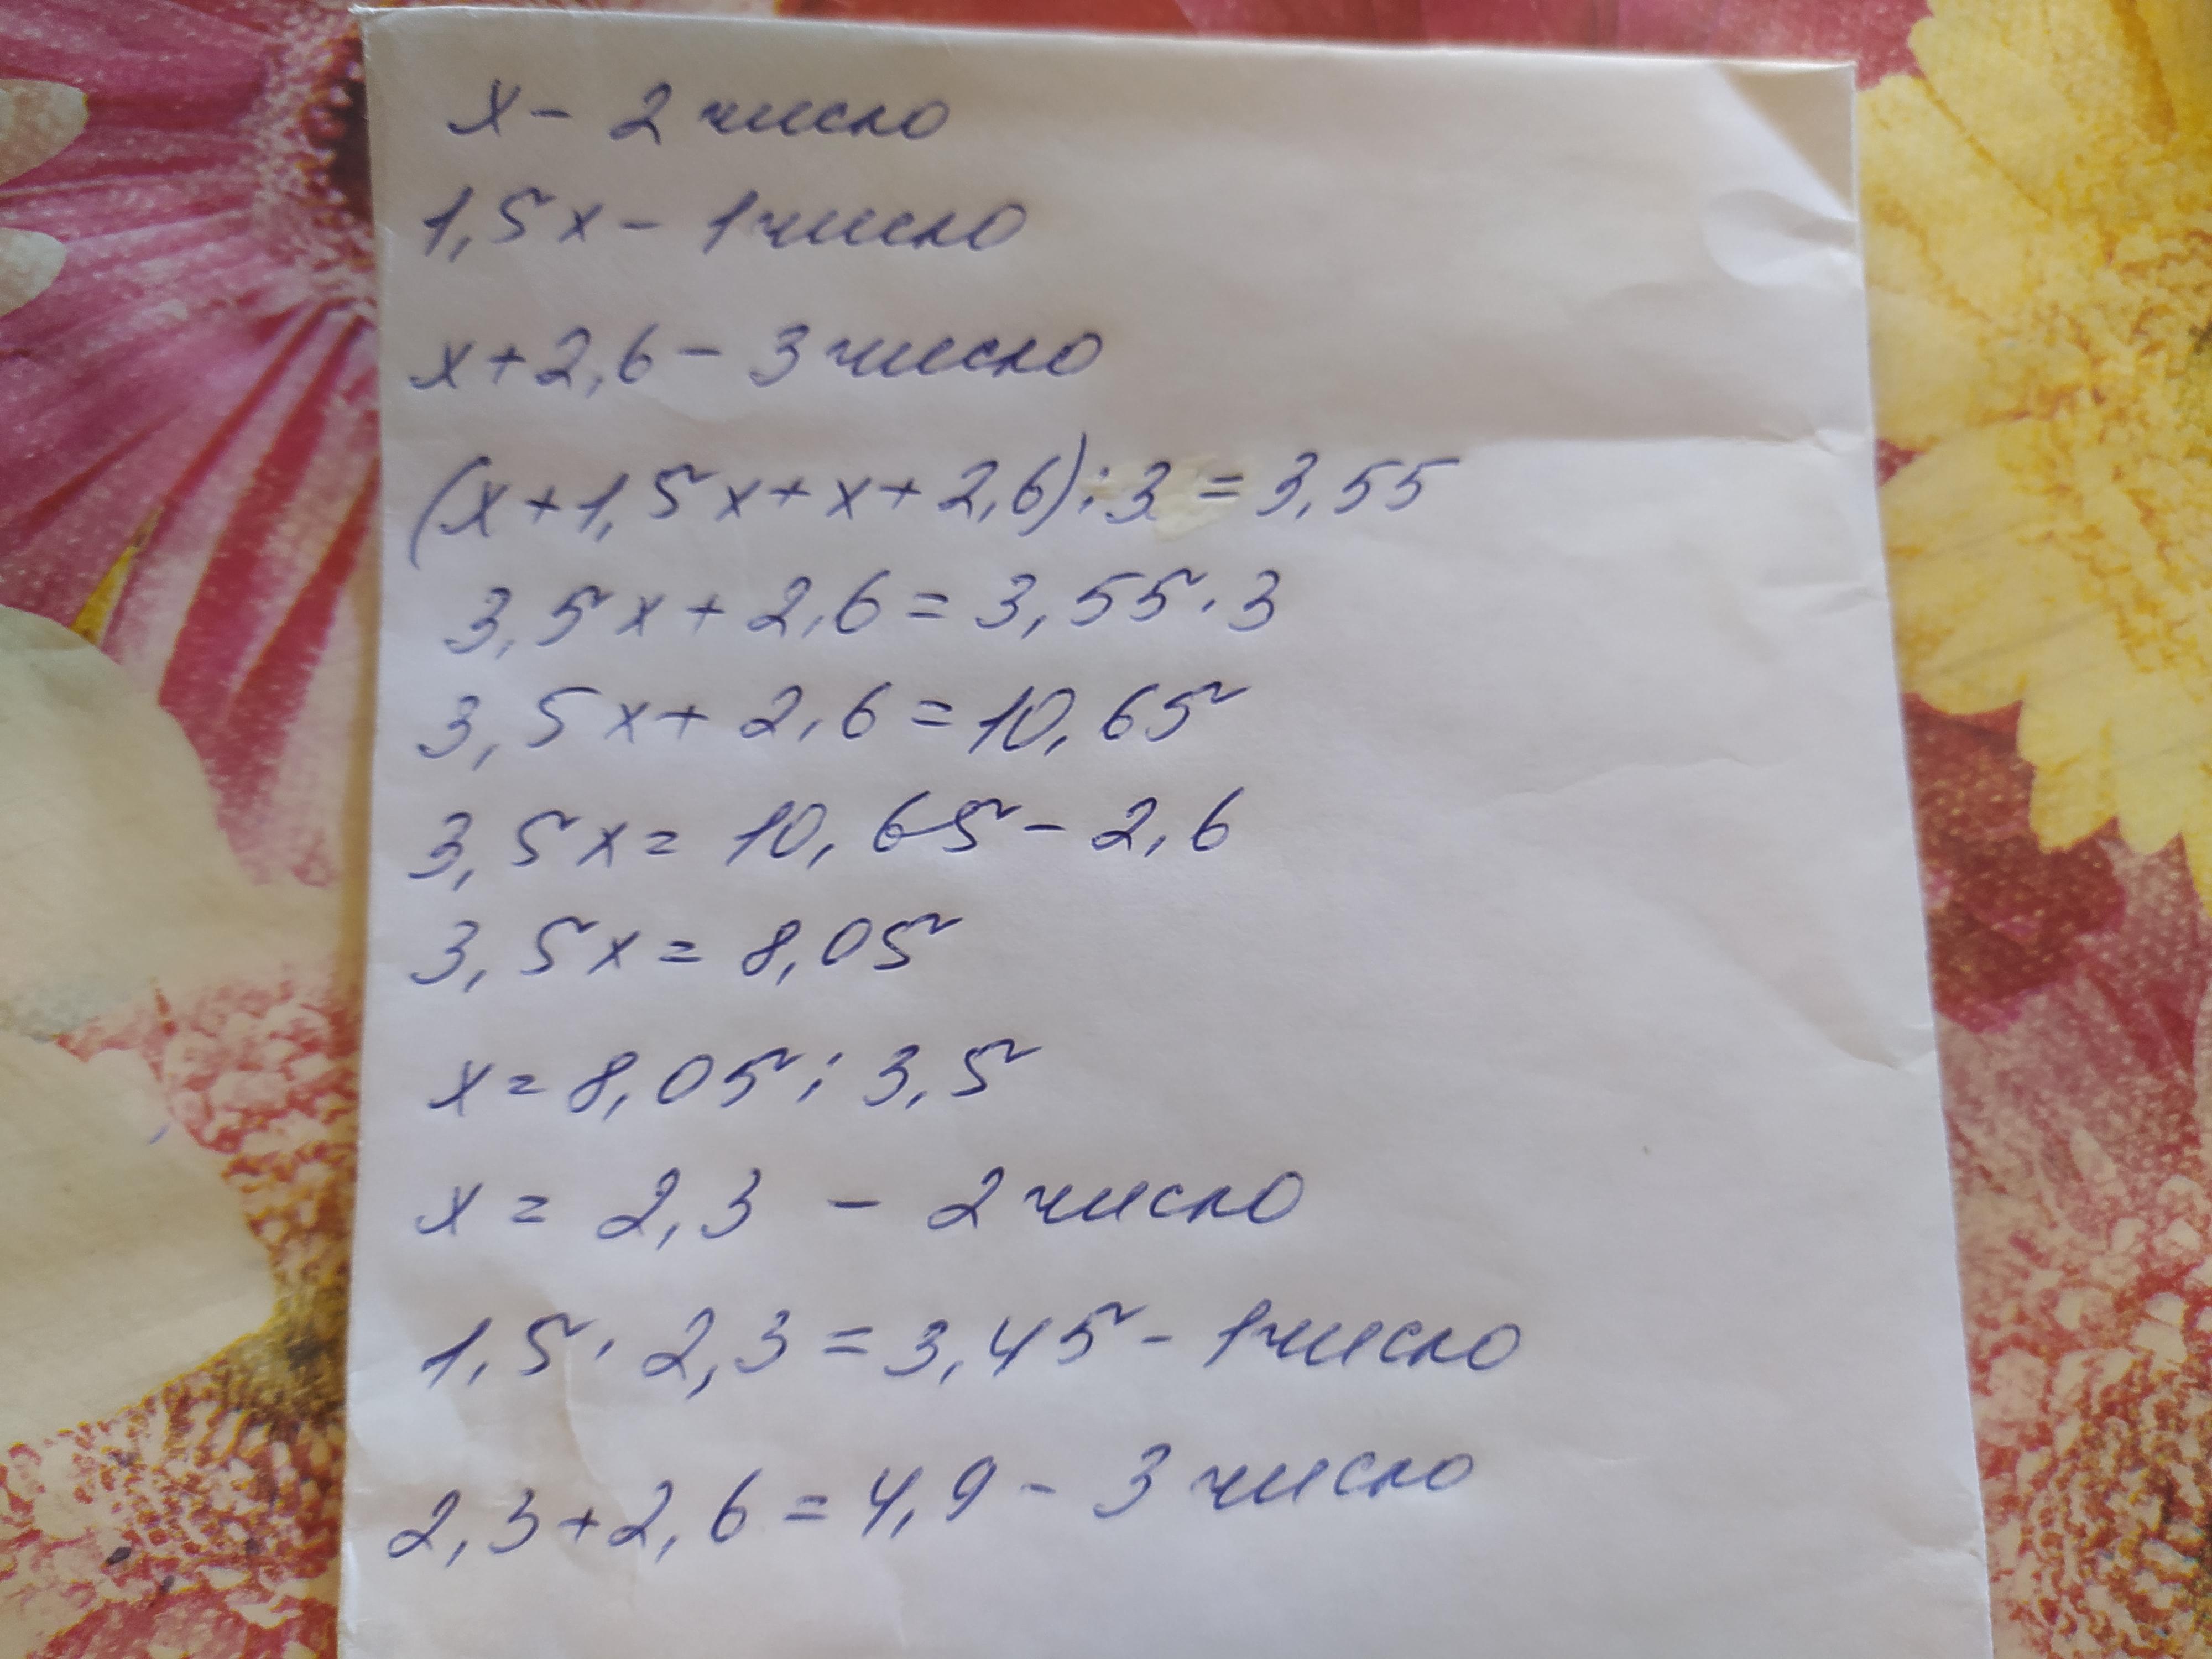 x - 2 число
1,5x - 1 число
x + 2,6 - 3 число
(x + 1,5x + x + 2,6) : 3 = 3,55
3,5x + 2,6 = 3,55 · 3
3,5x + 2,6 = 10,65
3,5x = 10,65 - 2,6
3,5x = 8,05
x = 8,05 : 3,5
x = 2,3 - 2 число
1,5 · 2,3 = 3,45 - 1 число
2,3 + 2,6 = 4,9 - 3 число